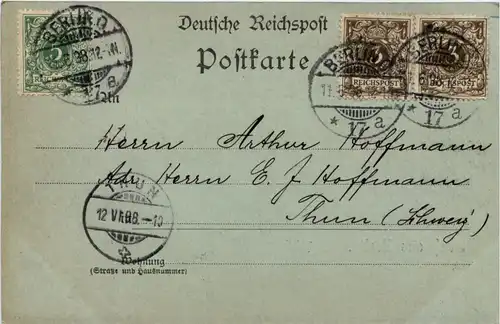 Deutsche Reichspost
Postkarte
BERLIN O.
17 a
BERLIN O.
17 a
BERLIN
17 a
3 3
REICHSPOST
Herrn Arthur Hoffmann
Adr. Herrn E. J. Hoffmann
Thun (Schweiz)
THUN
12 VI 98. – 10
Wohnung
(Straße und Hausnummer)